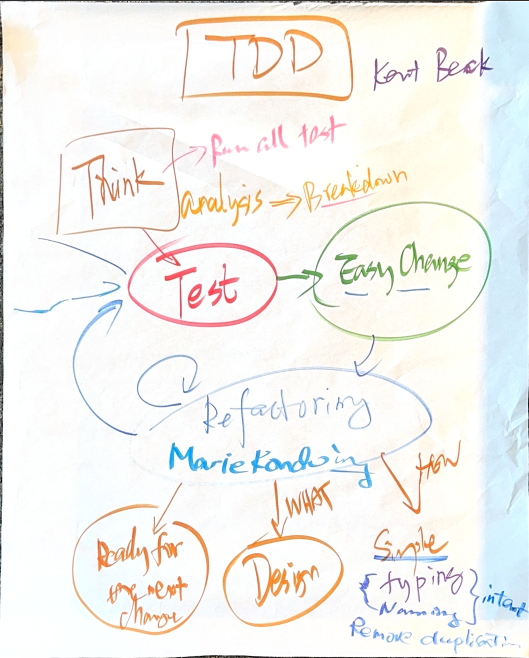 TDD
Kent Beck
Think
Run all test
analysis ⇒ Breakdown
Test
Easy Change
Refactoring
MarieKondoing
HOW
WHAT
Ready for
the next
change
Design
Simple
typing
Naming
Remove duplication